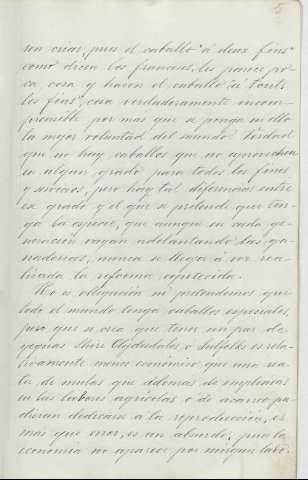 5
ren crias, pues el caballo "á deux fins"
como dicen los franceses, les parece po-
ca cosa y hacen el caballo "á touts
les fins", cosa verdaderamente incom-
prensible por más que se ponga en ello
la mejor voluntad del mundo. Verdad
que no hay caballos que no aprovechen
en algun grado para todos los fines
y servicios, pero hay tal diferencia entre
ese grado y el que se pretende que ten-
ga la especie, que aunque en cada ge-
neracion vayan adelantando las ga-
naderias, nunca se llegará á ver rea-
lizada la reforma apetecida.
No es obligación ni pretendemos que
todo el mundo tenga caballos especiales,
pero que se crea que tener un par de
yeguas Shire Clydesdales o Suffolks es rela-
tivamente menos económico que una rea-
ta de mulas que además de emplearse
en las labores agrícolas o de acarreo pu-
dieran dedicarse á la reproducción, es
más que error, es un absurdo; pues la
economía no aparece por ningun lado.